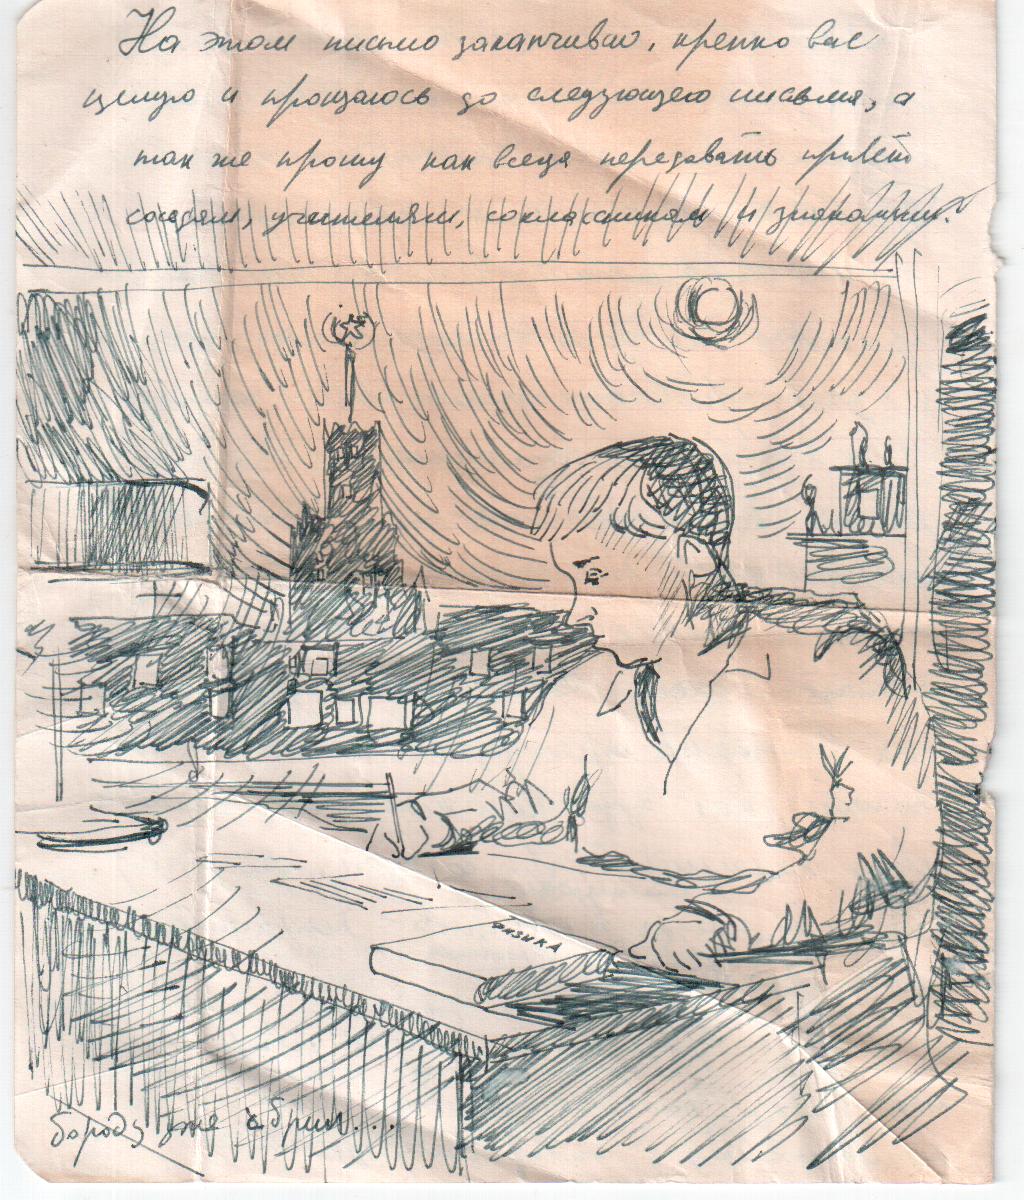 На этом письмо заканчиваю, крепко вас
целую и прощаюсь до следующего письма, а
так же прошу как всегда передавать привет
соседям, учителям, одноклассникам и знакомым.
ФИЗИКА
бороду уже сбрил...